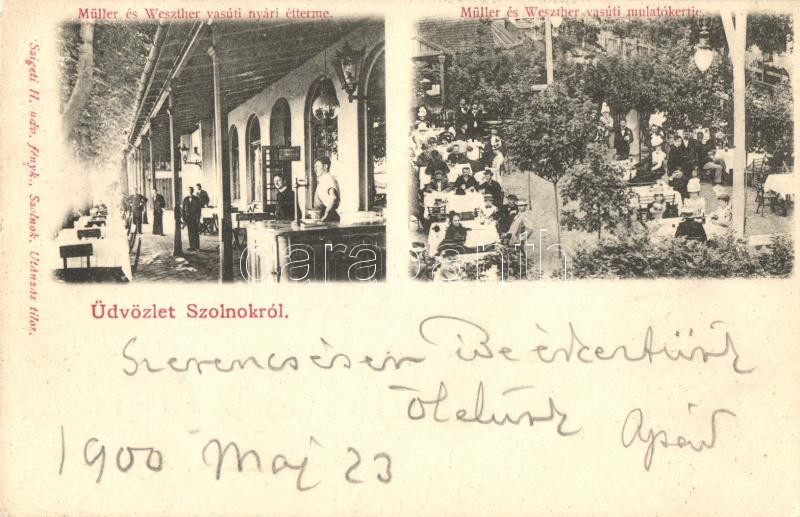 Müller és Weszther vasúti nyári étterme.
Müller és Weszther vasúti mulatókertje.
Szigeti H. udv. fényk., Szolnok. Utánzás tilos.
darabanth
Üdvözlet Szolnokról.
Szerencsésen Be érkeztünk
ölelünk Apád
1900 Maj 23